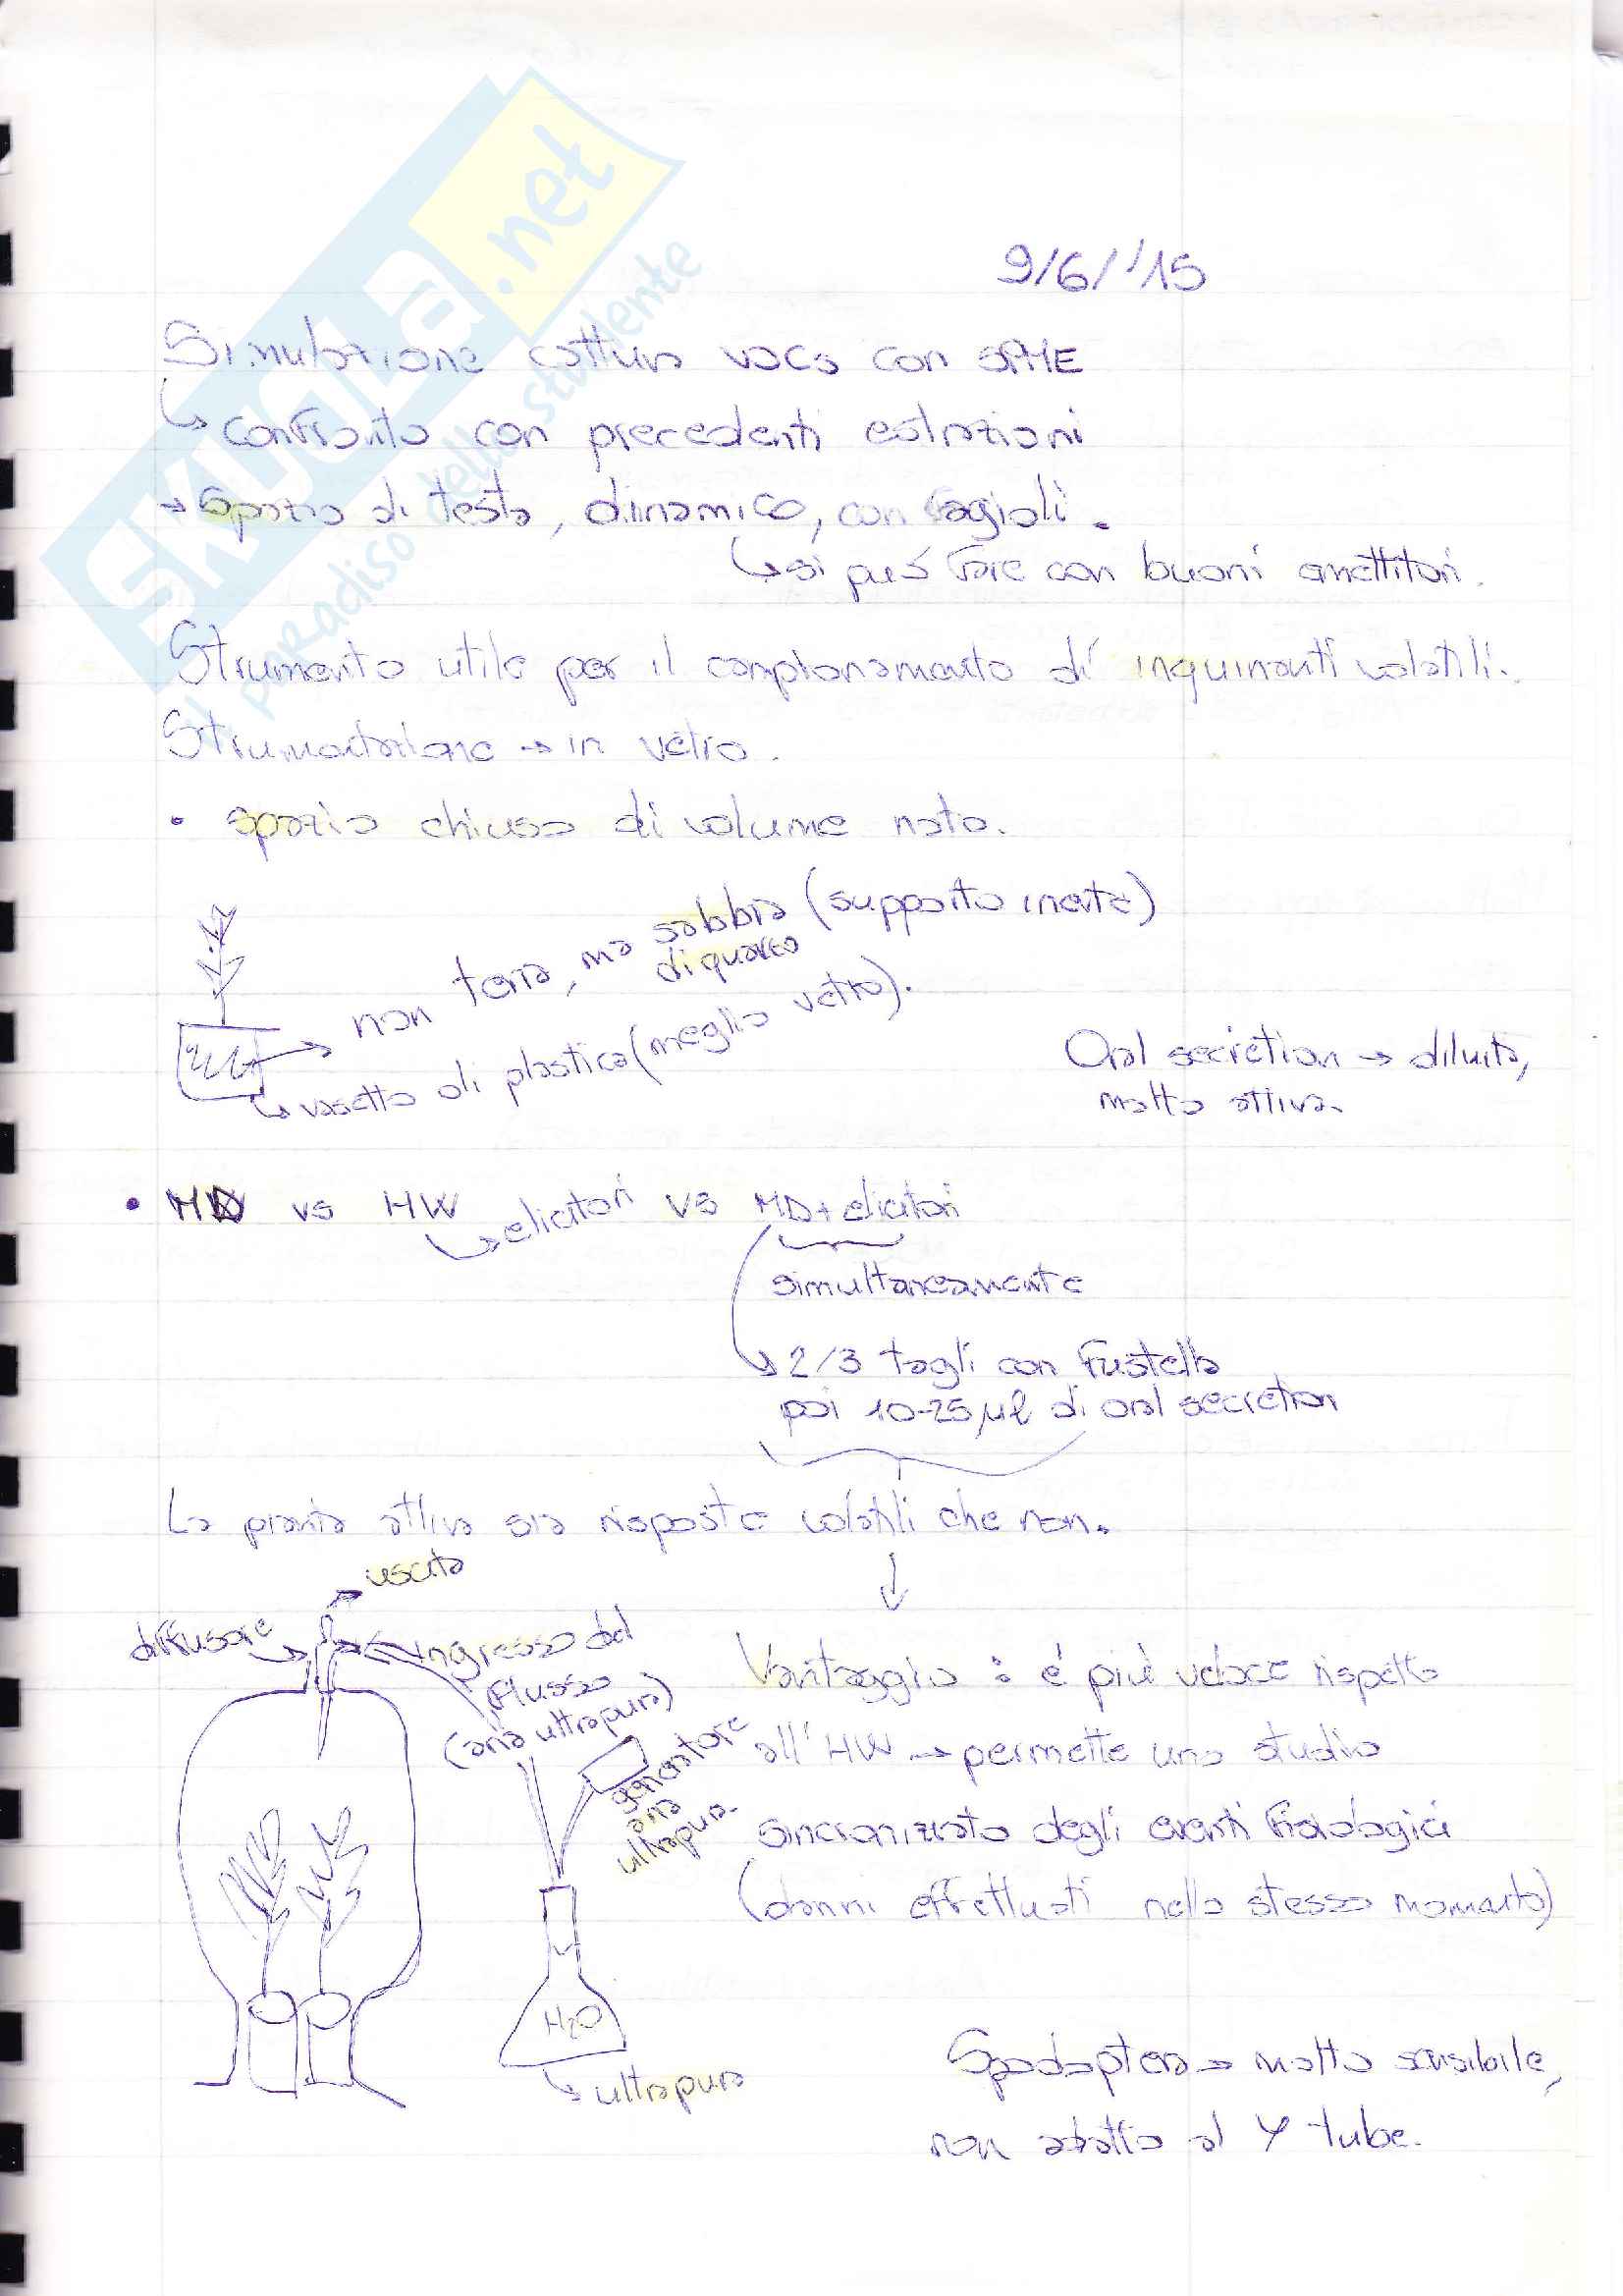 SKUOLA.net
il paradiso dello studente
9/6/'15
Simulazione cattura VOCs con SPME
↳ confronto con precedenti estrazioni
→ Spazio di testa, dinamico, con fagioli.
↳ si può fare con buoni emettitori.
Strumento utile per il campionamento di inquinanti volatili.
Strumentazione → in vetro.
• spazio chiuso di volume noto.
non terra, ma sabbia (supporto inerte)
di quarzo
↳ vasetto di plastica (meglio vetro).
Oral secretion → diluita,
molto attiva.
• MD vs HW ↳ elicitori vs MD + elicitori
simultaneamente
↳ 2/3 tagli con fustella
poi 10-25 µl di oral secretion
La pianta attiva sia risposte volatili che non.
↓
uscita
diffusore
ingresso del
flusso
(aria ultrapura)
generatore
aria
ultrapura.
H2O
↳ ultrapura
Vantaggio: è più veloce rispetto
all'HW → permette uno studio
sincronizzato degli eventi fisiologici
(danni effettuati nello stesso momento)
Spodoptera → molto sensibile,
non adatto al Y tube.